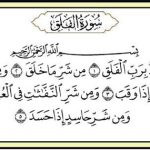 سُورَةُ الْفَلَقِ
بِسْمِ اللَّهِ الرَّحْمَٰنِ الرَّحِيمِ
بِرَبِّ الْفَلَقِ ١ مِن شَرِّ مَا خَلَقَ ٢
إِذَا وَقَبَ ٣ وَمِن شَرِّ النَّفَّاثَاتِ فِي
وَمِن شَرِّ حَاسِدٍ إِذَا حَسَدَ ٥